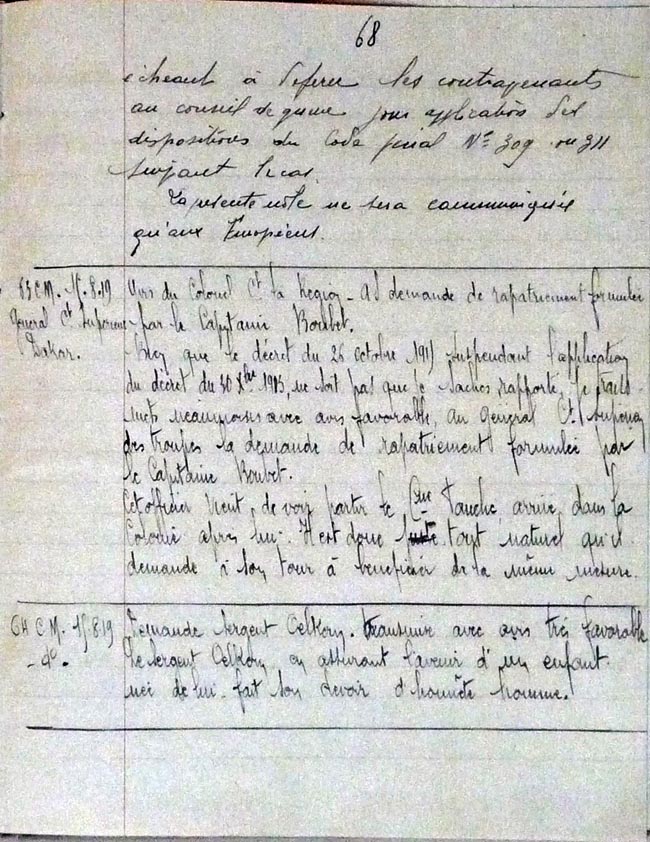 68
échéant à déférer les contrevenants
au conseil de guerre pour application des
dispositions du Code pénal Nº 309 ou 311
suivant le cas.
La présente note ne sera communiquée
qu'aux Européens.
63 C.M. 15.8.19
Général Ct Supérieur
Dakar.
Avis du Colonel Ct la Région - AS demande de rapatriement formulée
par le Capitaine Boubet.
Bien que le décret du 26 octobre 191 suspendant l'application
du décret du 30 Xbre 1903, ne soit pas que je saches, rapporté, je trans
mets néanmoins avec avis favorable, au Général Ct Supérieur
des troupes la demande de rapatriement formulée par
le Capitaine Boubet.
Cet officier vient de voir partir le Cne Tauche, arrivé dans la
Colonie après lui. Il est donc tout naturel qu'il
demande à son tour à bénéficier de la même mesure.
64 C.M. 15.8.19
- do -
Demande Sergent. Transmise avec avis très favorable
Le Sergent, en assurant l'avenir d'un enfant
né de lui fait son devoir d'honnête homme.